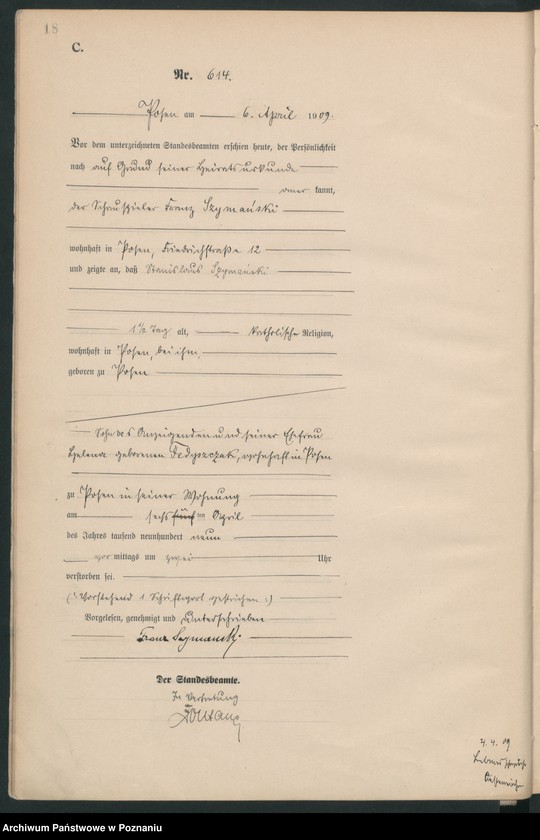 18
C.
Nr. 614.
Posen am 6. April 1909.
Vor dem unterzeichneten Standesbeamten erschien heute, der Persönlichkeit
nach auf Grund seiner Heiratsurkunde
aner kannt,
der Schauspieler Franz Szymański
wohnhaft in Posen, Friedrichstraße 12
und zeigte an, daß Stanislaus Szymański
1 1/2 Tag alt, katholischer Religion,
wohnhaft in Posen, bei ihm,
geboren zu Posen
Sohn des Anzeigenden und seiner Ehefrau
Helena geborenen Fedyszczak, wohnhaft in Posen
zu Posen in seiner Wohnung
am sechs fünf ten April
des Jahres tausend neunhundert neun
vor mittags um zwei Uhr
verstorben sei.
(: Vorstehend 1 Schriftwort gestrichen :)
Vorgelesen, genehmigt und unterschrieben
Franz Szymański
Der Standesbeamte.
In Vertretung
4. 4. 09
Archiwum Państwowe w Poznaniu